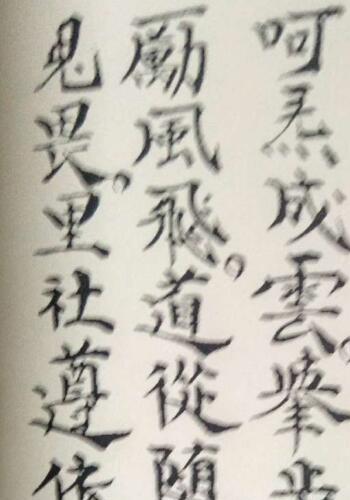 呵炁成雲。步
勵風飛。道從隨
鬼畏。里社遵依